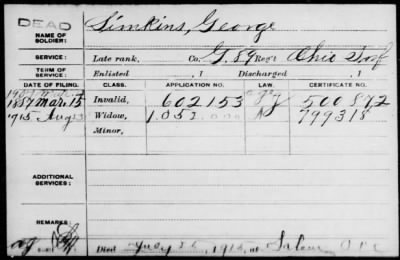 DEAD
NAME OF SOLDIER:
Simkins, George
SERVICE:
Late rank, Co. G, 89 Reg't Ohio Inf
TERM OF SERVICE:
Enlisted , 1 Discharged , 1
DATE OF FILING. CLASS. APPLICATION NO. LAW. CERTIFICATE NO.
1887 Mar. 15 Invalid, 602153 500872
1915 Aug Widow, 1.052. 799318
Minor,
ADDITIONAL SERVICES:
REMARKS:
Died 1915, at Salem